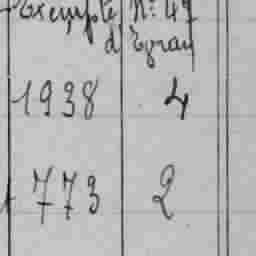 Exemple N: 49
d'Egray
1938 4
1773 2